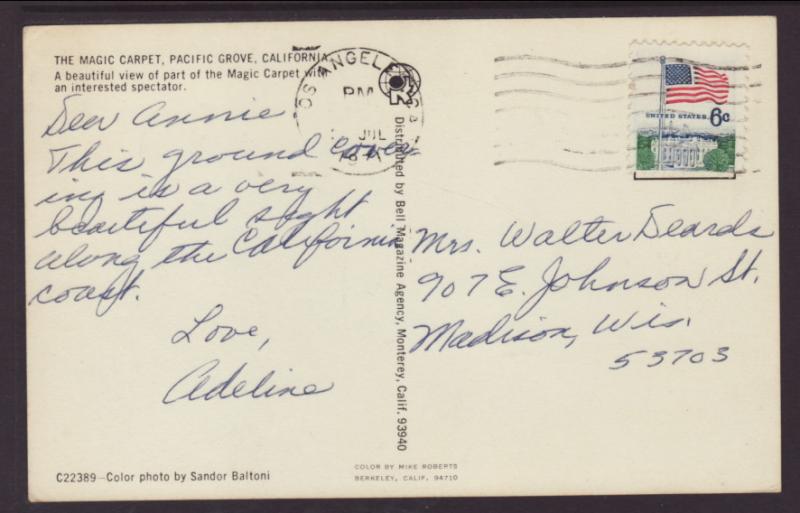 THE MAGIC CARPET, PACIFIC GROVE, CALIFORNIA
A beautiful view of part of the Magic Carpet with
an interested spectator.
Dear Annie
This ground cover-
ing is a very
beautiful sight
along the California
coast.
Love,
Adeline
C22389—Color photo by Sandor Baltoni
LOS ANGELES, CA
PM
JUL
Distributed by Bell Magazine Agency, Monterey, Calif. 93940
COLOR BY MIKE ROBERTS
BERKELEY, CALIF. 94710
UNITED STATES 6c
Mrs. Walter Deards
907 E. Johnson St.
Madison, Wis.
53703